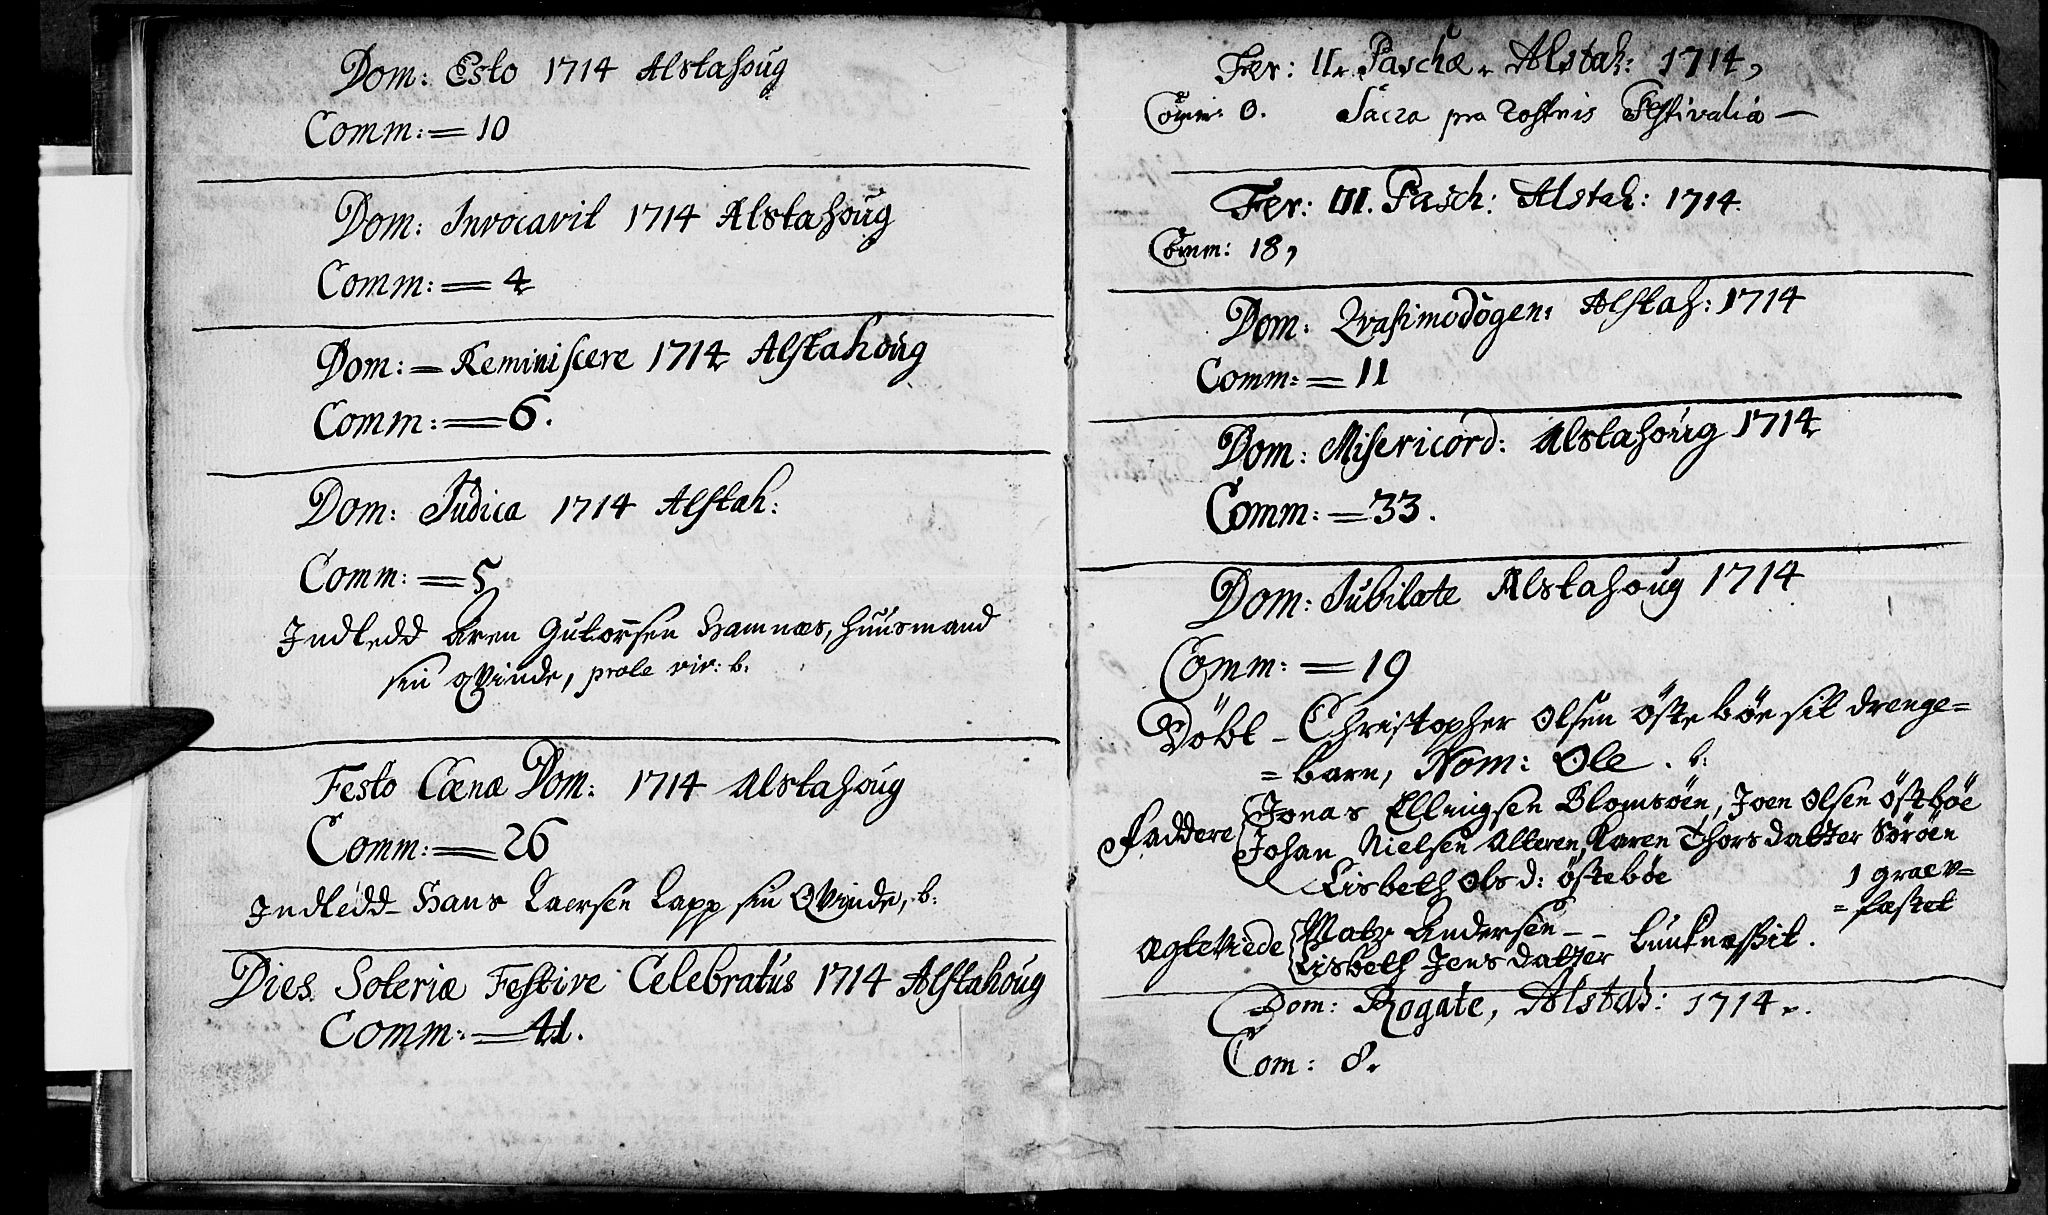 Dom: Esto 1714 Alstahoug
Comm: = 10
Dom: Invocavit 1714 Alstahoug
Comm: = 4
Dom: = Reminiscere 1714 Alstahoug
Comm: = 6.
Dom: Judica 1714 Alstah:
Comm: = 5
Indledd Aren Gutorsen Hamnæs, huusmand
sin qvinde, prole vir: b.
Festo Cœnæ Dom: 1714 Alstahoug
Comm: = 26
Indledd - Hans Larsen Lapp sin Qvinde, b:
Dies Soteriæ Festive Celebratus 1714 Alstahoug
Comm: = 41.
Fer: II. Paschæ. Alstah: 1714,
Comm: 0. Sacra pro rostris Festivalia —
Fer: III. Pasch: Alstah: 1714.
Comm: 18,
Dom: Qvasimodogen: Alstah: 1714
Comm: = 11
Dom: Misericord: Alstahoug 1714
Comm: = 33.
Dom: Jubilate Alstahoug 1714
Comm: = 19
Döbt - Christopher Olsen östebøe sit drenge=
= barn, Nom: Ole . b:
Faddere Jonas Ellingsen Blomsöen, Joen Olsen östbøe
Johan Nielsen Alteren, Karen Thorsdatter Söröen
Lisbeth Olsd: östebøe
1 graev=
= fæstet
Ægteviede Matz Andersen - -
Lisbeth Jensdatter
Dom: Rogate, Alstah: 1714.
Com: 8.